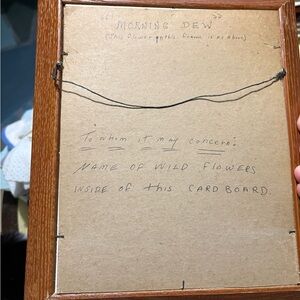 "MORNING DEW"
(This flower in this frame is as above)
To whom it may concern:
NAME OF WILD FLOWERS
INSIDE OF this CARDBOARD.